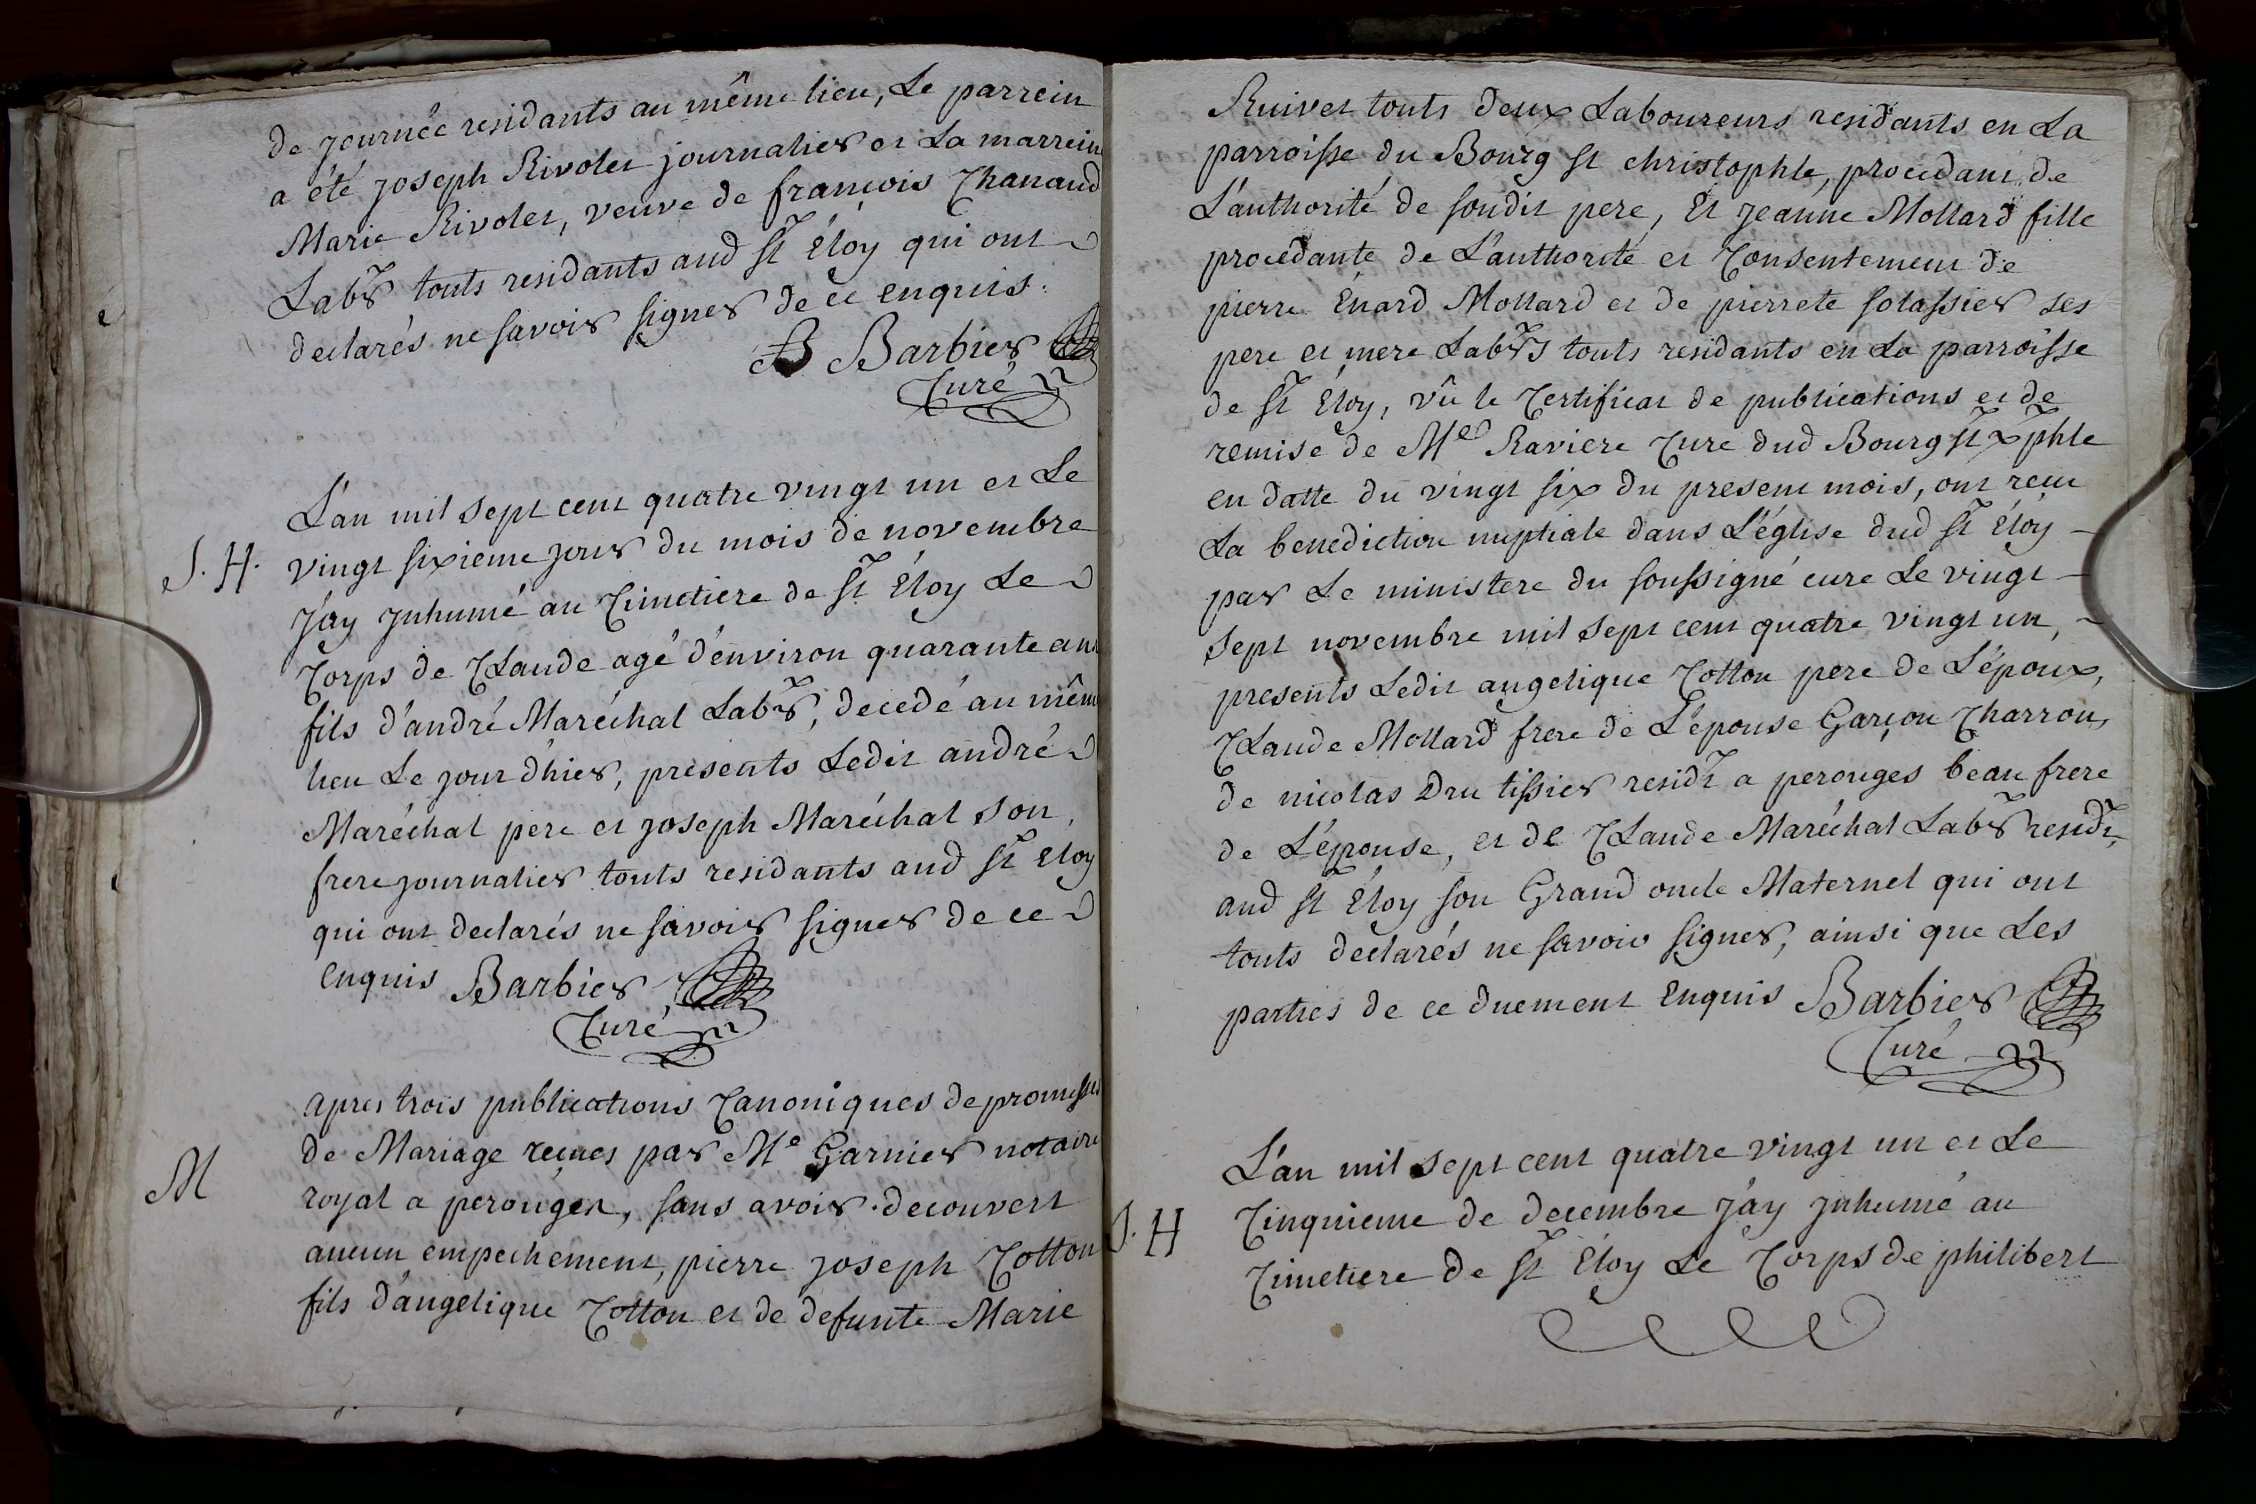 de journée residants au même lieu, Le parrein
a été joseph Rivolet journalier et La marrein
Marie Rivolet, veuve de françois Chanaud
Labr touts residants aud St Éloy qui ont
declarés ne savoir signer de ce enquis.
B Barbier
Curé
L'an mil sept cent quatre vingt un et Le
J. H. vingt sixieme jour du mois de novembre
J'ay Inhumé au Cimetiere de St Éloy Le
Corps de Claude agé d'environ quarante ans
fils d'andré Maréchal Labr, decedé au mêm
lieu Le jour d'hier, presents Ledit andré
Maréchal pere et joseph Maréchal son
frere journalier touts residants aud St Eloy
qui ont declarés ne savoir signer de ce
enquis Barbier
Curé
M
apres trois publications Canoniques de promesses
de Mariage reçues par Me Garnier notaire
royal a perouges, sans avoir decouvert
aucun empechement, pierre joseph Cotton
fils d'angelique Cotton et de defunte Marie
Ruivet touts deux Laboureurs residants en La
parroisse du Bourg St christophle, procedant de
L'authorité de sondit pere, Et jeanne Mollard fille
procedante de L'authorité et Consentement de
pierre Enard Mollard et de pierrete solassier ses
pere et mere Labrs touts residants en La parroisse
de St Éloy, vû le Certificat de publications et de
remise de Me Raviere Curé dud Bourg St xphle
en datte du vingt six du present mois, ont reçu
La benediction nuptiale dans L'église dud St Éloy
par Le ministere du soussigné curé Le vingt
sept novembre mil sept cent quatre vingt un,
presents Ledit angelique Cotton pere de L'époux,
Claude Mollard frere de L'épouse Garçon Charron,
de nicolas Dru tissier residt a perouges beau frere
de L'épouse, et de Claude Maréchal Labr residt,
aud St Éloy son Grand oncle Maternel qui ont
touts declarés ne savoir signer, ainsi que Les
parties de ce duement Enquis Barbier
Curé
L'an mil sept cent quatre vingt un et Le
J. H Cinquieme de decembre J'ay Inhumé au
Cimetiere de St Éloy Le Corps de philibert